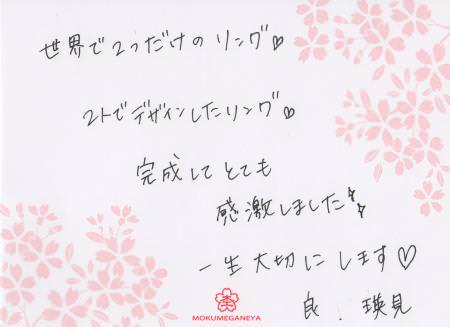 世界で2つだけのリング♡
2人でデザインしたリング♡
完成してとても
感激しました
一生大切にします♡
良. 瑛見
MOKUMEGANEYA